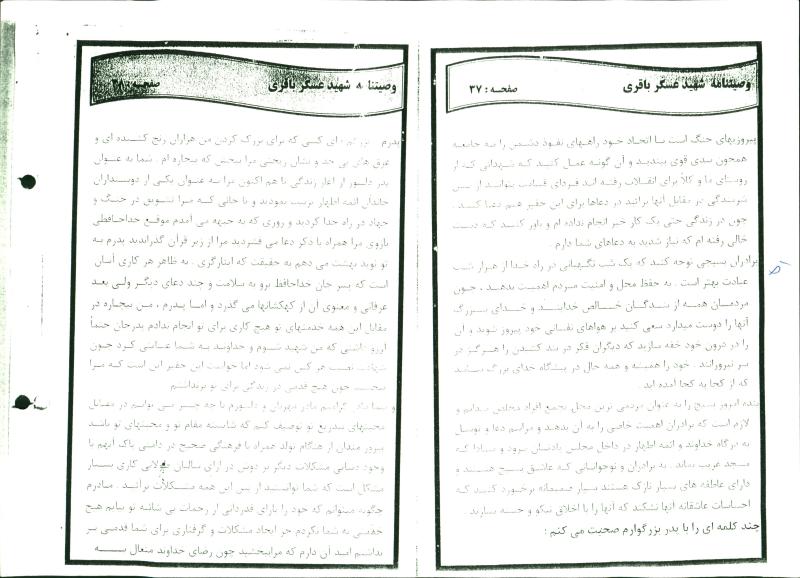 وصیتنامه شهید عسگر باقری صفحه : ۳۷
پیروزیهای جنگ است با اتحاد خود راههای نفوذ دشمن را به جامعه
همچون سدی قوی ببندید و آن گونه عمل کنید که شهدائی که از
روستای ما و کلاً برای انقلاب رفته اند فردای قیامت بتوانند از
شرمندگی در مقابل آنها برائند در دعاها برای این حقیر هم دعا کنید .
چون در زندگی حتی یک کار خیر انجام نداده ام و باور کنید که دست
خالی رفته ام که نیاز شدید به دعاهای شما دارم .
برادران بسیجی توجه کنید که یک شب نگهبانی در راه خدا از هزار شب
عبادت بهتر است . به حفظ محل و امنیت مردم اهمیت بدهید . چون
مردمان همه از بندگان خالص خداست و خدای بزرگ
آنها را دوست میدارد سعی کنید بر هواهای نفسانی خود پیروز شوید و آن
را در درون خود خفه سازید که دیگران فکر در بند کشدن را هرگز در
سر نپرورانند . خود را همیشه و همه حال در پیشگاه خدای بزرگ ببینید
که از کجا به کجا آمده اید .
بنده امروز بسیج را به عنوان مردمی ترین محل تجمع افراد مخلص میدانم و
لازم است که برادران اهمیت خاصی را به آن بدهند و مراسم دعا و توسل
به درگاه خداوند و ائمه اطهار در داخل مجلس یادتان نرود و مبادا که
مسجد غریب بماند . به برادران و نوجوانانی که عاشق بسیج هستند و
دارای عاطفه های بسیار نازک هستند بسیار صمیمانه برخورد کنید که
احساسات عاشقانه آنها نشکند که آنها را با اخلاق نیکو و حسنه بسازید .
چند کلمه ای را با پدر بزرگوارم صحبت می کنم :
وصیتنامه شهید عسگر باقری صفحه : ۳۸
پدرم بزرگم ، ای کسی که برای بزرگ کردن من هزاران رنج کشیده ای و
عرق های بی حد و نشان ریختی مرا ببخش که بیچاره ام . شما به عنوان
پدر دلسوز از آغاز زندگی تا هم اکنون مرا به عنوان یکی از دوستداران
خاندان ائمه اطهار تربیت نمودید و تا جائی که مرا تشویق در جنگ و
جهاد در راه خدا کردید و روزی که به جبهه می آمدم موقع خداحافظی
بازوی مرا همراه با ذکر دعا می فشردید مرا از زیر قرآن گذراندید پدرم به
تو نوید بهشت می دهم به حقیقت که ایثارگری . به ظاهر هر کاری آسان
است که پسر جان خداحافظ برو به سلامت و چند دعای دیگر ولی بعد
عرفانی و معنوی آن از کهکشانها می گذرد و اما پدرم ، من بیچاره در
مقابل این همه خدمتهای تو هیچ کاری برای تو انجام ندادم پدرجان حتماً
آرزو داشتی که من شهید شوم و خداوند به شما عنایتی کرد چون
شهادت نصیب هر کس نمی شود اما خواست این حقیر این است که مرا
ببخشید چون هیچ قدمی در زندگی برای تو برنداشتم
و شما مادر گرامیم مادر مهربان و دلسوزم با چه چیز می توانم در مقابل
محبتهای بیدریغ تو توصیف کنم که شایسته مقام تو و محبتهای تو باشد
پرورش فرزندان از هنگام تولد همراه با فرهنگی صحیح در دامنی پاک آنهم با
وجود دستانی مشکلات دیگر بر دوش در ازای سالیان طولانی کاری بسیار
مشکل است که شما توانستید از پس این همه مشکلات برآئید . مادرم
چگونه میتوانم که خود را یارای قدردانی از زحمات بی شائبه تو بیابم هیچ
خدمتی به شما نکردم جز ایجاد مشکلات و گرفتاری برای شما قدمی بر
نداشتم امید آن دارم که مرا ببخشید چون رضای خداوند متعال بسته